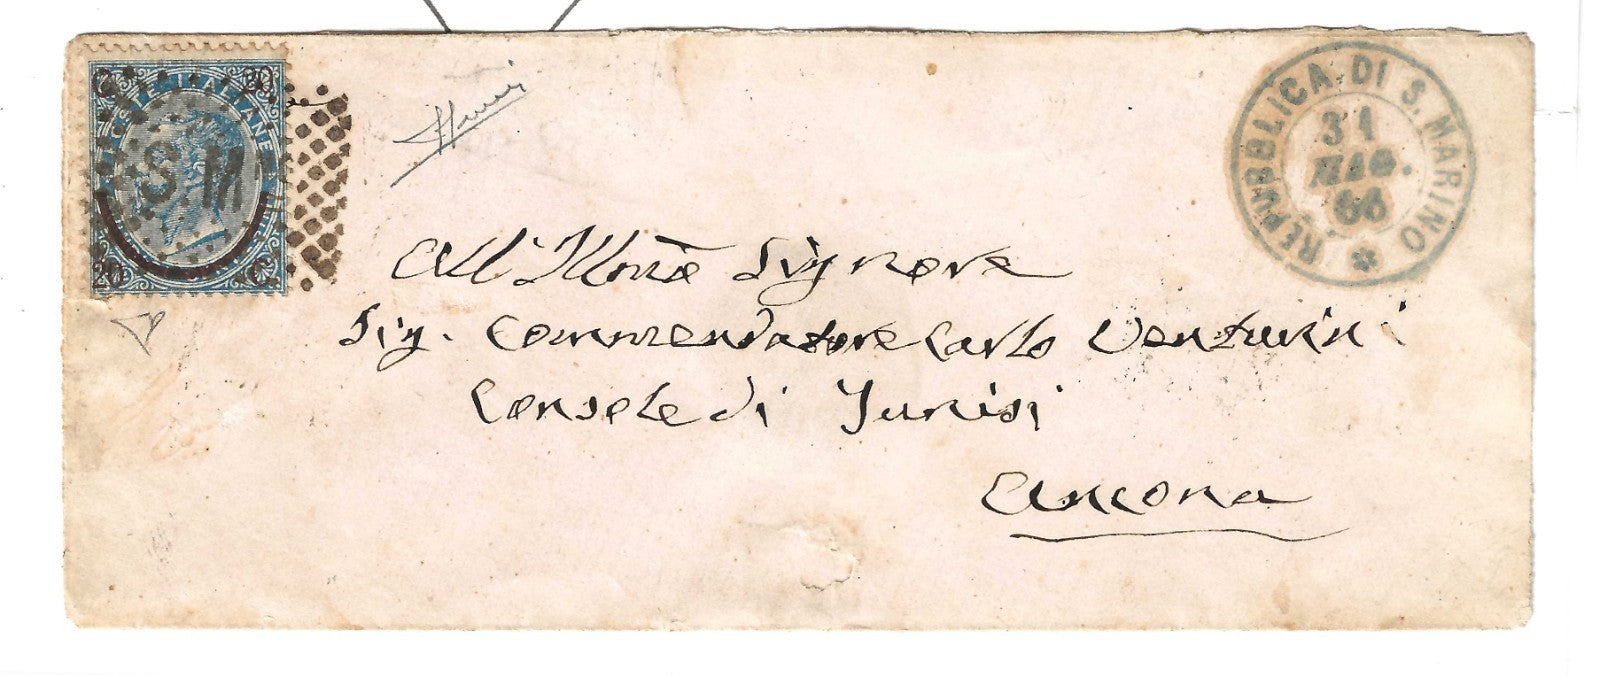 POSTE ITALIANE
20
20 C
S M
REPUBBLICA DI S. MARINO
31
MAG.
66
All'Illmo Signore
Sig. Commendatore Carlo Venturini
Console di Tunisi
Ancona